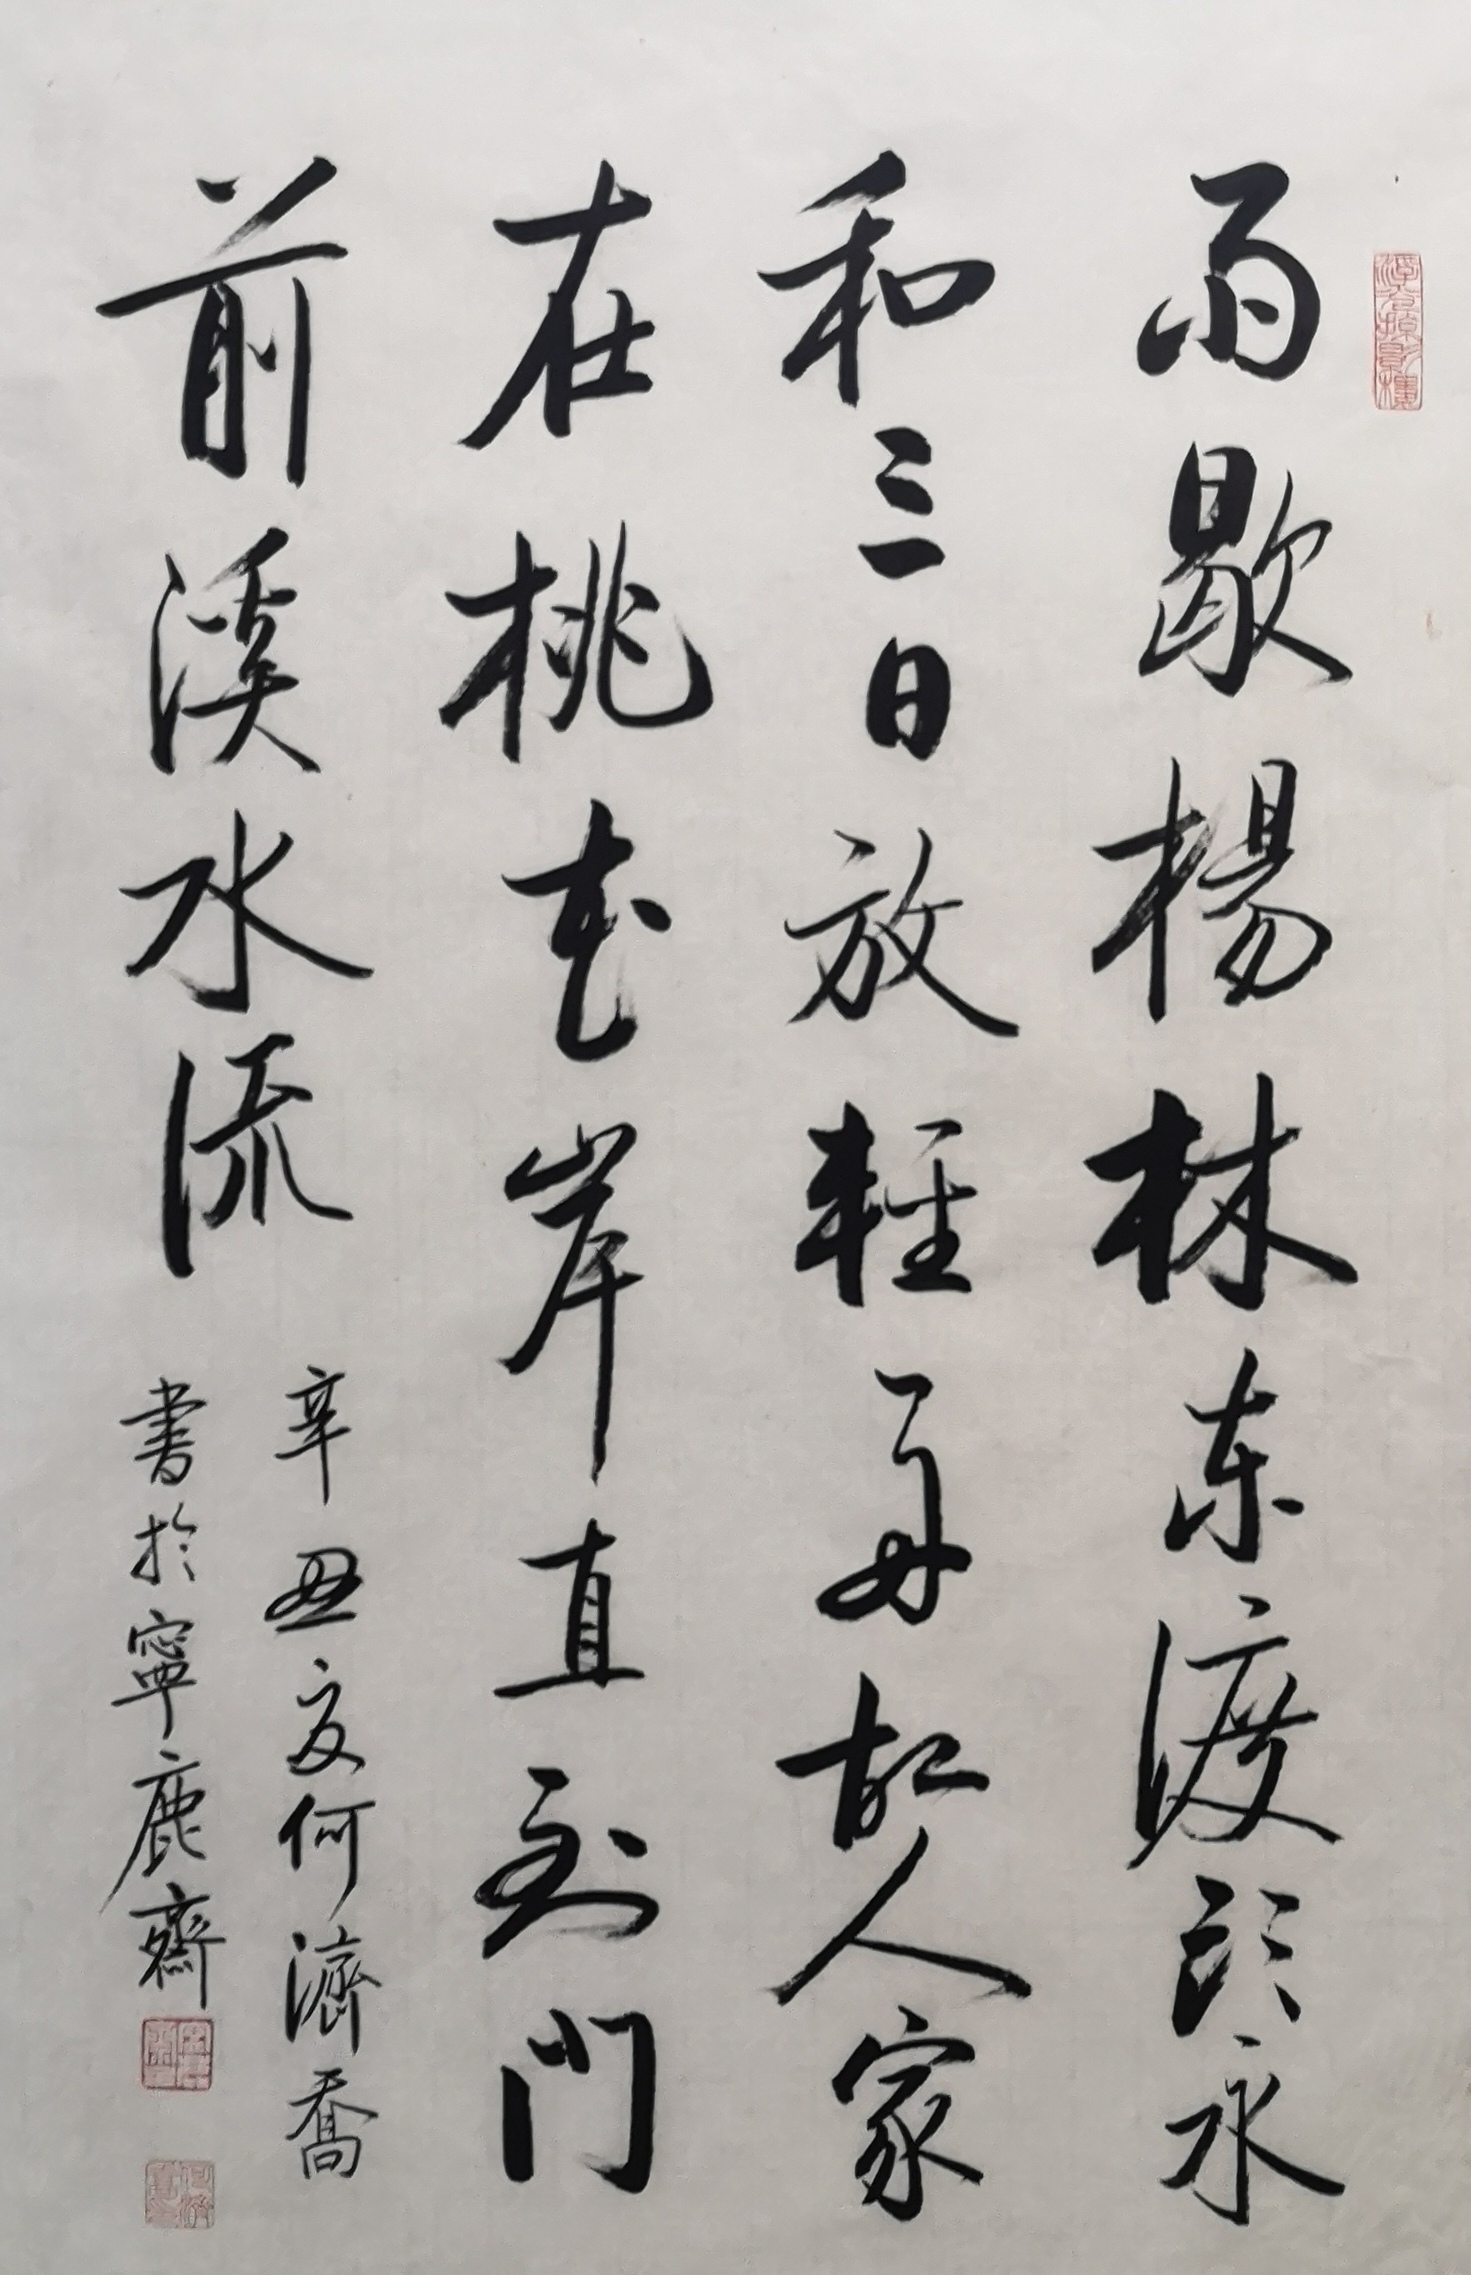 雨歇楊林东渡头永
和三日放軽舟故人家
在桃花岸直到門
前溪水流
辛丑夏何濟喬
書於寧鹿齋